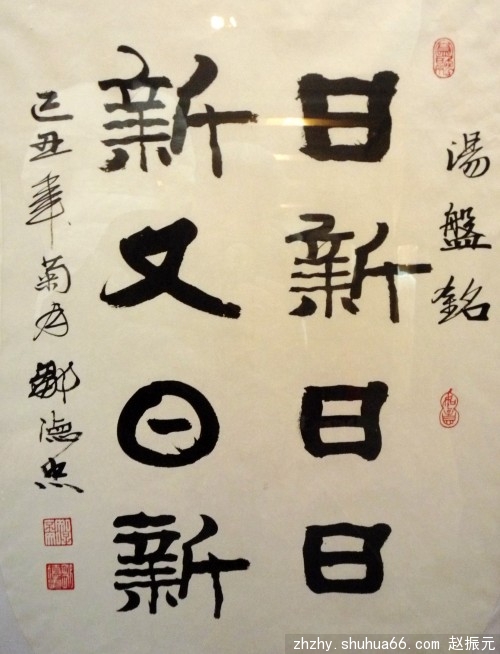 湯盤銘
日新日日
新又日新
己丑年菊月鄒德忠
zhzhy.shuhua66.com 赵振元